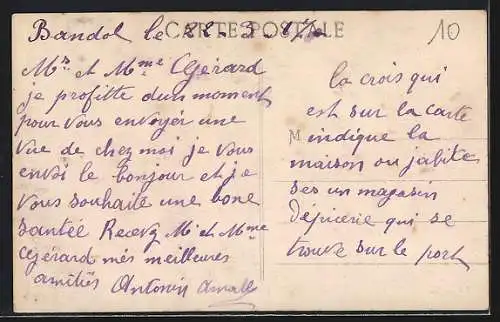 CARTE POSTALE
Bandol le 22 - 3 -
10
Mrs et Mme Gérard
je profitte dun moment
pour vous envoyér une
vue de chez moi je vous
envoi le bonjour et je
vous souhaite une bone
santée Recevez Mr et Mme
Gérard més meilleures
amitiés Antonin
la crois qui
est sur la carte
M indique la
maison ou jabite
ses un magasin
dépicerie qui se
trouve sur le port